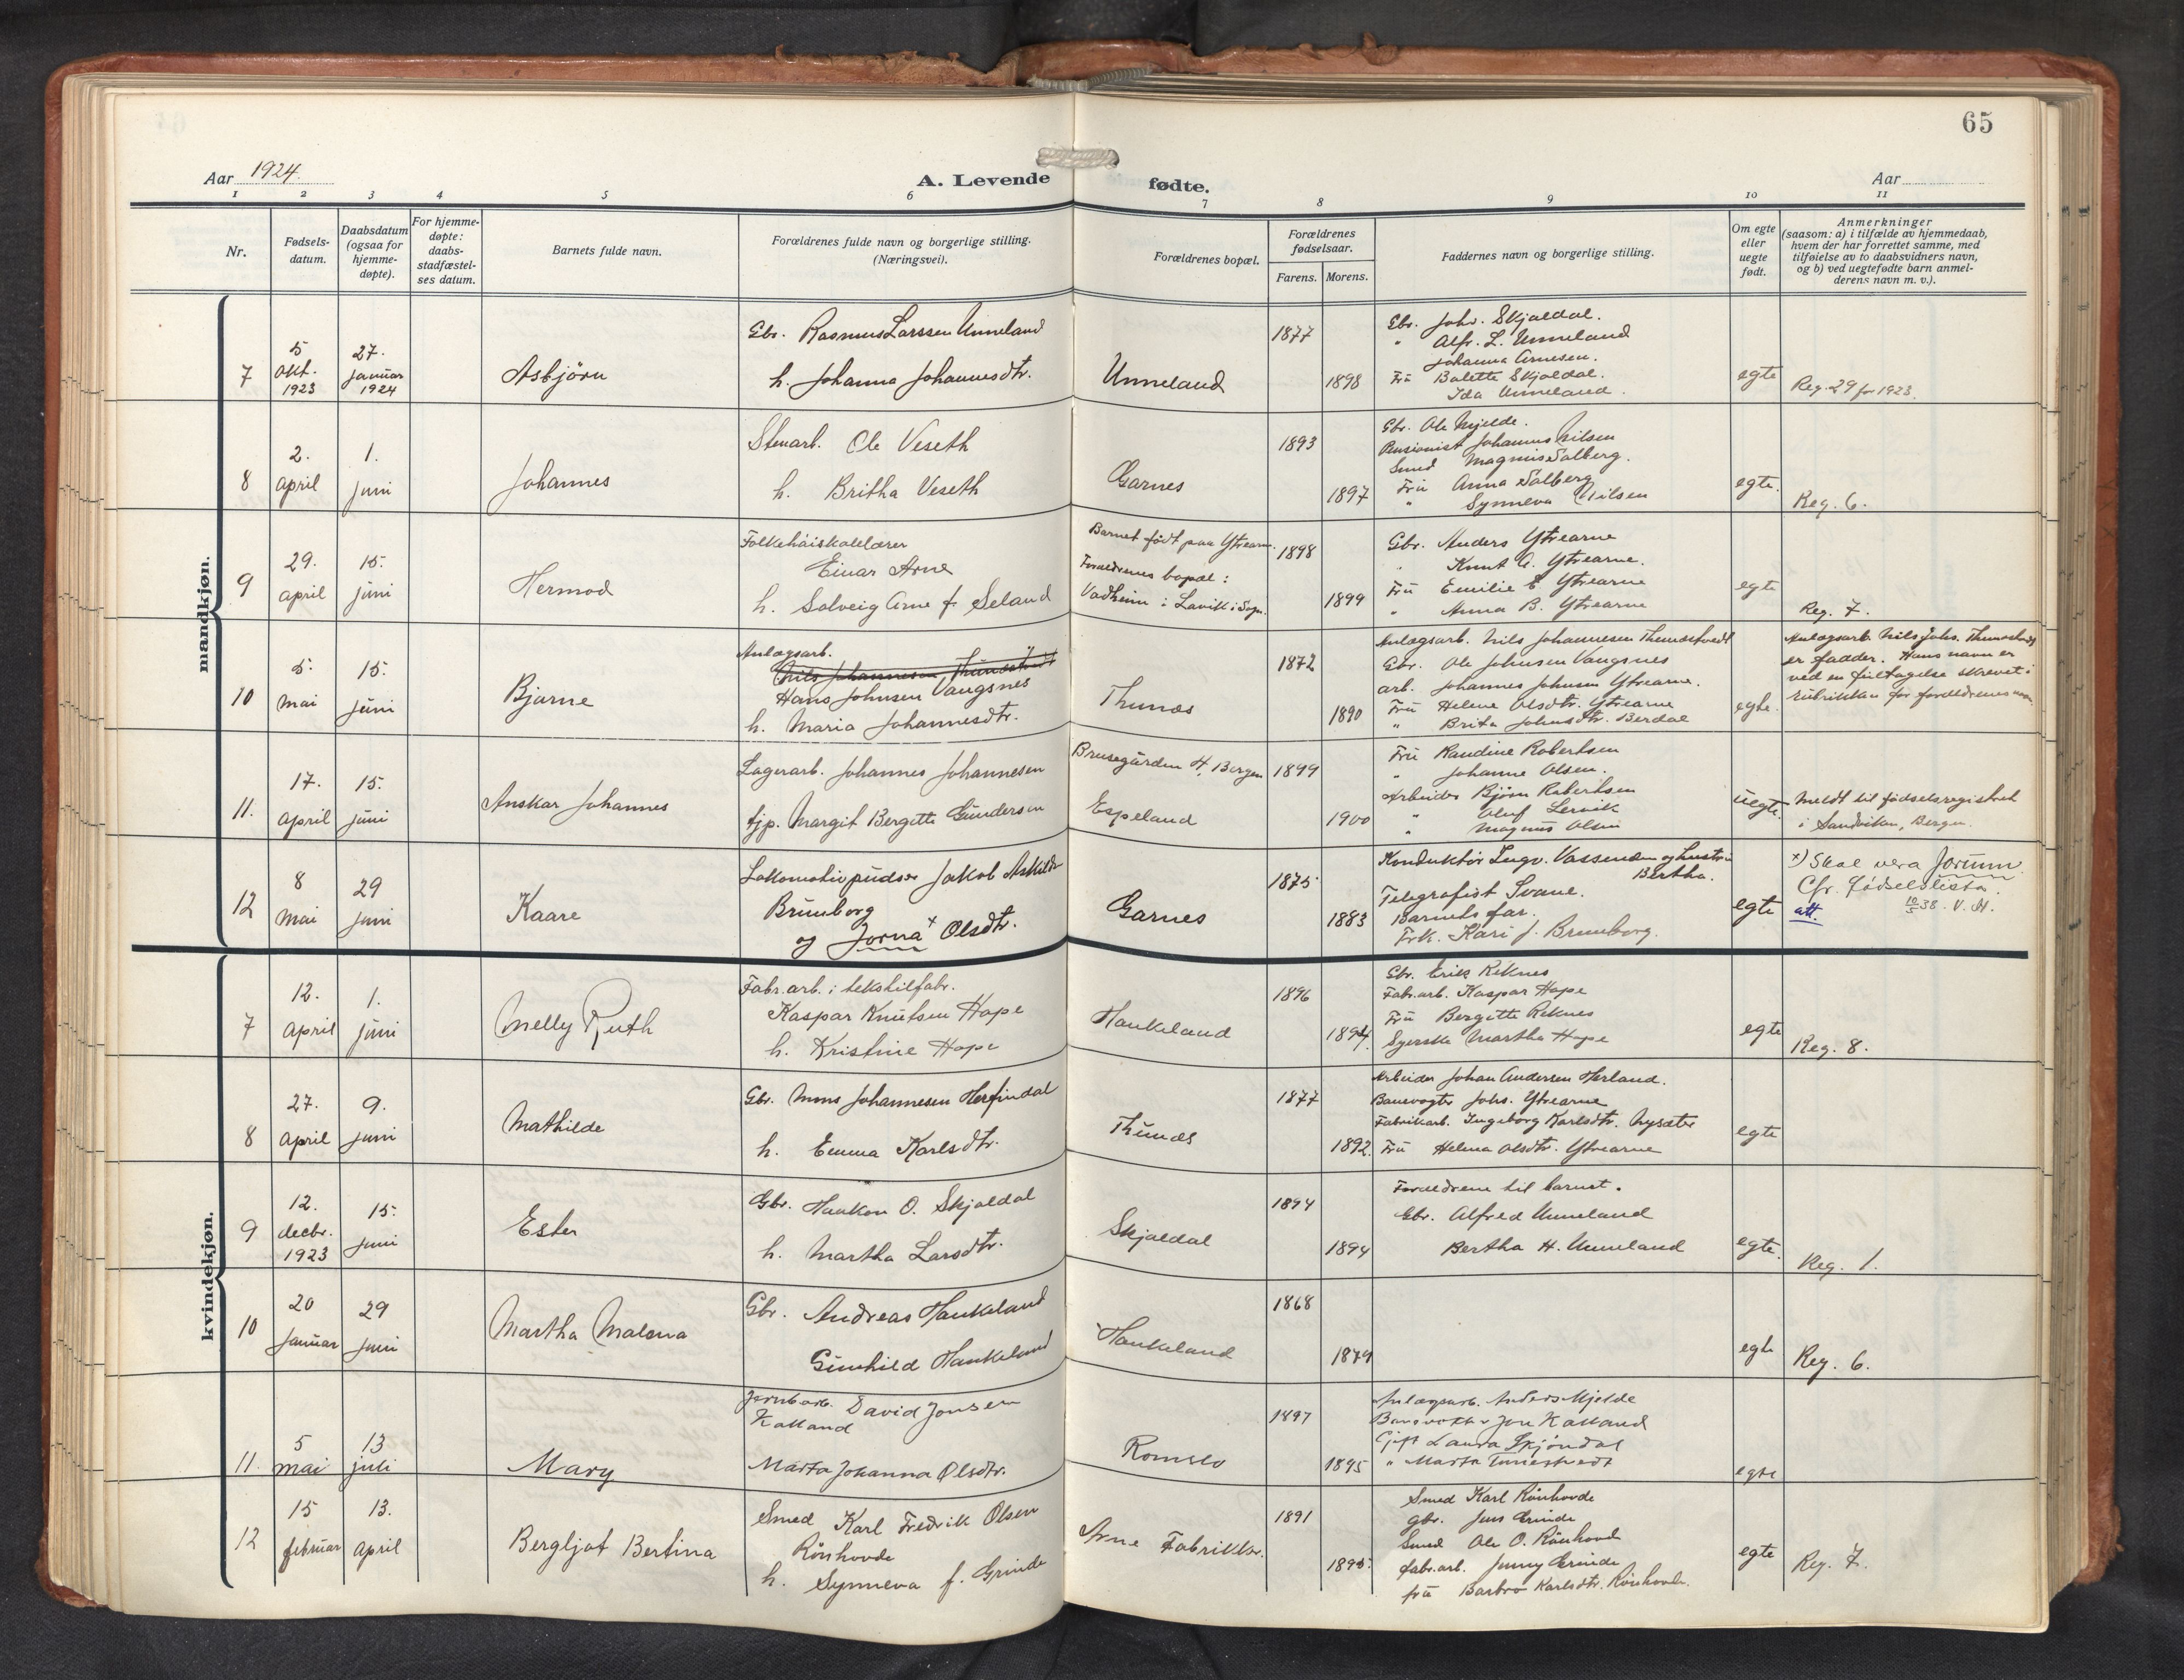 65
Aar 1924.
A. Levende fødte.
Aar
1 2 3 4 5 6 7 8 9 10 11
Nr.
Fødsels-
datum.
Daabsdatum
(ogsaa for
hjemme-
døpte).
For hjemme-
døpte:
daabs-
stadfæstel-
ses datum.
Barnets fulde navn.
Forældrenes fulde navn og borgerlige stilling.
(Næringsvei).
Forældrenes bopæl.
Forældrenes
fødselsaar.
Farens. Morens.
Faddernes navn og borgerlige stilling.
Om egte
eller
uegte
født.
Anmerkninger
(saasom: a) i tilfælde av hjemmedaab,
hvem der har forrettet samme, med
tilføielse av to daabsvidners navn,
og b) ved uegtefødte barn anmel-
derens navn m. v.).
mandkjøn.
7
5
Okt.
1923
27.
januar
1924
Asbjörn
Gbr. Rasmus Larssen Unneland
h. Johanna Johannesdtr.
Unneland
1877
1898
Gbr. Johs. Skjældal.
" Alfr. L. Unneland
Johanna Arnesen.
Fru Balette Skjoldal.
Ida Unneland.
egte
Reg. 29 for 1923.
8
2.
April
1.
juni
Johannes
Stenarb. Ole Veseth
h. Britha Veseth
Garnes
1893
1897
Gbr. Ole Mjelde.
Pensionist Johannes Nilsen
Smed Magnus Salberg.
Fru Anna Salberg
" Synneva Nilsen
egte.
Reg. 6.
9
29.
April
15.
juni
Hermod
Folkehöiskolelærer
Einar Arne
h. Solveig Arne f. Seland
Barnet født paa Ytrearne.
Forældrenes bopæl:
Vadheim i Lavik i Sogn.
1898
1899
Gbr. Anders Ytrearne
" Knut A. Ytrearne.
Fru Emilie E Ytrearne
" Anna B. Ytrearne
egte
Reg. 7.
10
5.
Mai
15.
juni
Bjarne
Anlægsarb.
Nils Johannesen Thunestvedt
Hans Johnsen Vangsnes
h. Maria Johannesdtr.
Thunes
1872
1890
Anlægsarb. Nils Johannesen Thunestvedt
Gbr. Ole Johnsen Vangsnes
arb. Johannes Johnsen Ytrearne.
Fru Helene Olsdtr. Ytrearne
" Brita Johnsdtr. Berdal
egte.
Anlægsarb. Nils Johs. Thunestvedt
er fadder. Hans navn er
ved en feiltagelse skrevet i
rubrikken for forældrenes navn.
11.
17.
April
15.
juni
Anskar Johannes
Lagerarb. Johannes Johannesen
tjp. Margit Bergitte Gundersen
Brusegården 4, Bergen
Espeland
1899
1900
Fru Randine Robertsen
" Johanne Olsen.
Arbeider Bjørn Robertsen
" Oluf Lervik
" Magnus Olsen
uegte.
Meldt til födselsregistret
i Sandviken, Bergen.
12
8
Mai
29
juni
Kaare
Lokomotivpudser Jakob Askilds
Brunborg
og Jorna x Olsdtr.
Garnes
1875
1883
Konduktør Ingv. Vassenden og hustru
Bertha.
Telegrafist Svane.
Barnets far.
Frk. Kari J. Brunborg.
egte
x) Skal vera Jorunn.
Cfr. födselslista.
10/5 38. V. H.
att.
kvindekjøn.
7
12.
April
1.
juni
Melly Ruth
Fabr.arb. i tekstilfabr.
Kaspar Knutsen Hope
h. Kristine Hope
Haukeland
1896
1894.
Gbr. Erik Reknes
Fabr.arb. Kaspar Hope
Fru Bergitte Reknes
Syerske Martha Hope
egte
Reg. 8.
8
27.
April
9.
juni
Mathilde
Gbr. Mons Johannesen Herfindal
h. Emma Karlsdtr.
Thunes
1877
1892.
Arbeider Johan Andersen Herland.
Banevogter Johs. Ytrearne
Fabrikarb. Ingeborg Karlsdtr. Nysæter
Fru Helena Olsdtr. Ytrearne
egte
9
12.
decbr.
1923
15.
juni
Ester
Gbr. Haukon O. Skjoldal
h. Martha Larsdtr.
Skjoldal
1894
1894
Forældrene til barnet.
Gbr. Alfred Unneland
Bertha H. Unneland
egte.
Reg. 1.
10
20
januar
29
juni
Martha Malena
Gbr. Andreas Haukeland
Gunhild Haukeland
Haukeland
1868
1879
egte
Reg. 6.
11.
5
mai
13
juli
Mary
Jernb.arb. David Jonsen
Kalland
Marta Johanna Olsdtr.
Romslo
1897
1895
Anlægsarb. Anders Mjelde
Banevokter Jon Kalland
Gift Laura Skjöndal
" Marta Tunestvedt
egte
12
15
februar
13.
April
Bergljot Bertina
Smed Karl Fredrik Olsen
Rönhovde
h. Synneva f. Grinde
Arne Fabrikker.
1891
1895.
Smed Karl Rönhovde
gbr. Jens Grinde
Smed Ole O. Rönhovde
fabr.arb. Jenny Grinde
fru Barbro Karlsdtr. Rönhovde.
egte
Reg. 7.